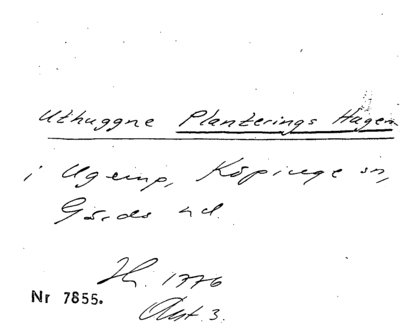 Uthuggne Planterings Hagen
i Ugerup, Köpinge sn,
Gärds hd.
H. 1776
Nr 7855.
Akt. 3.